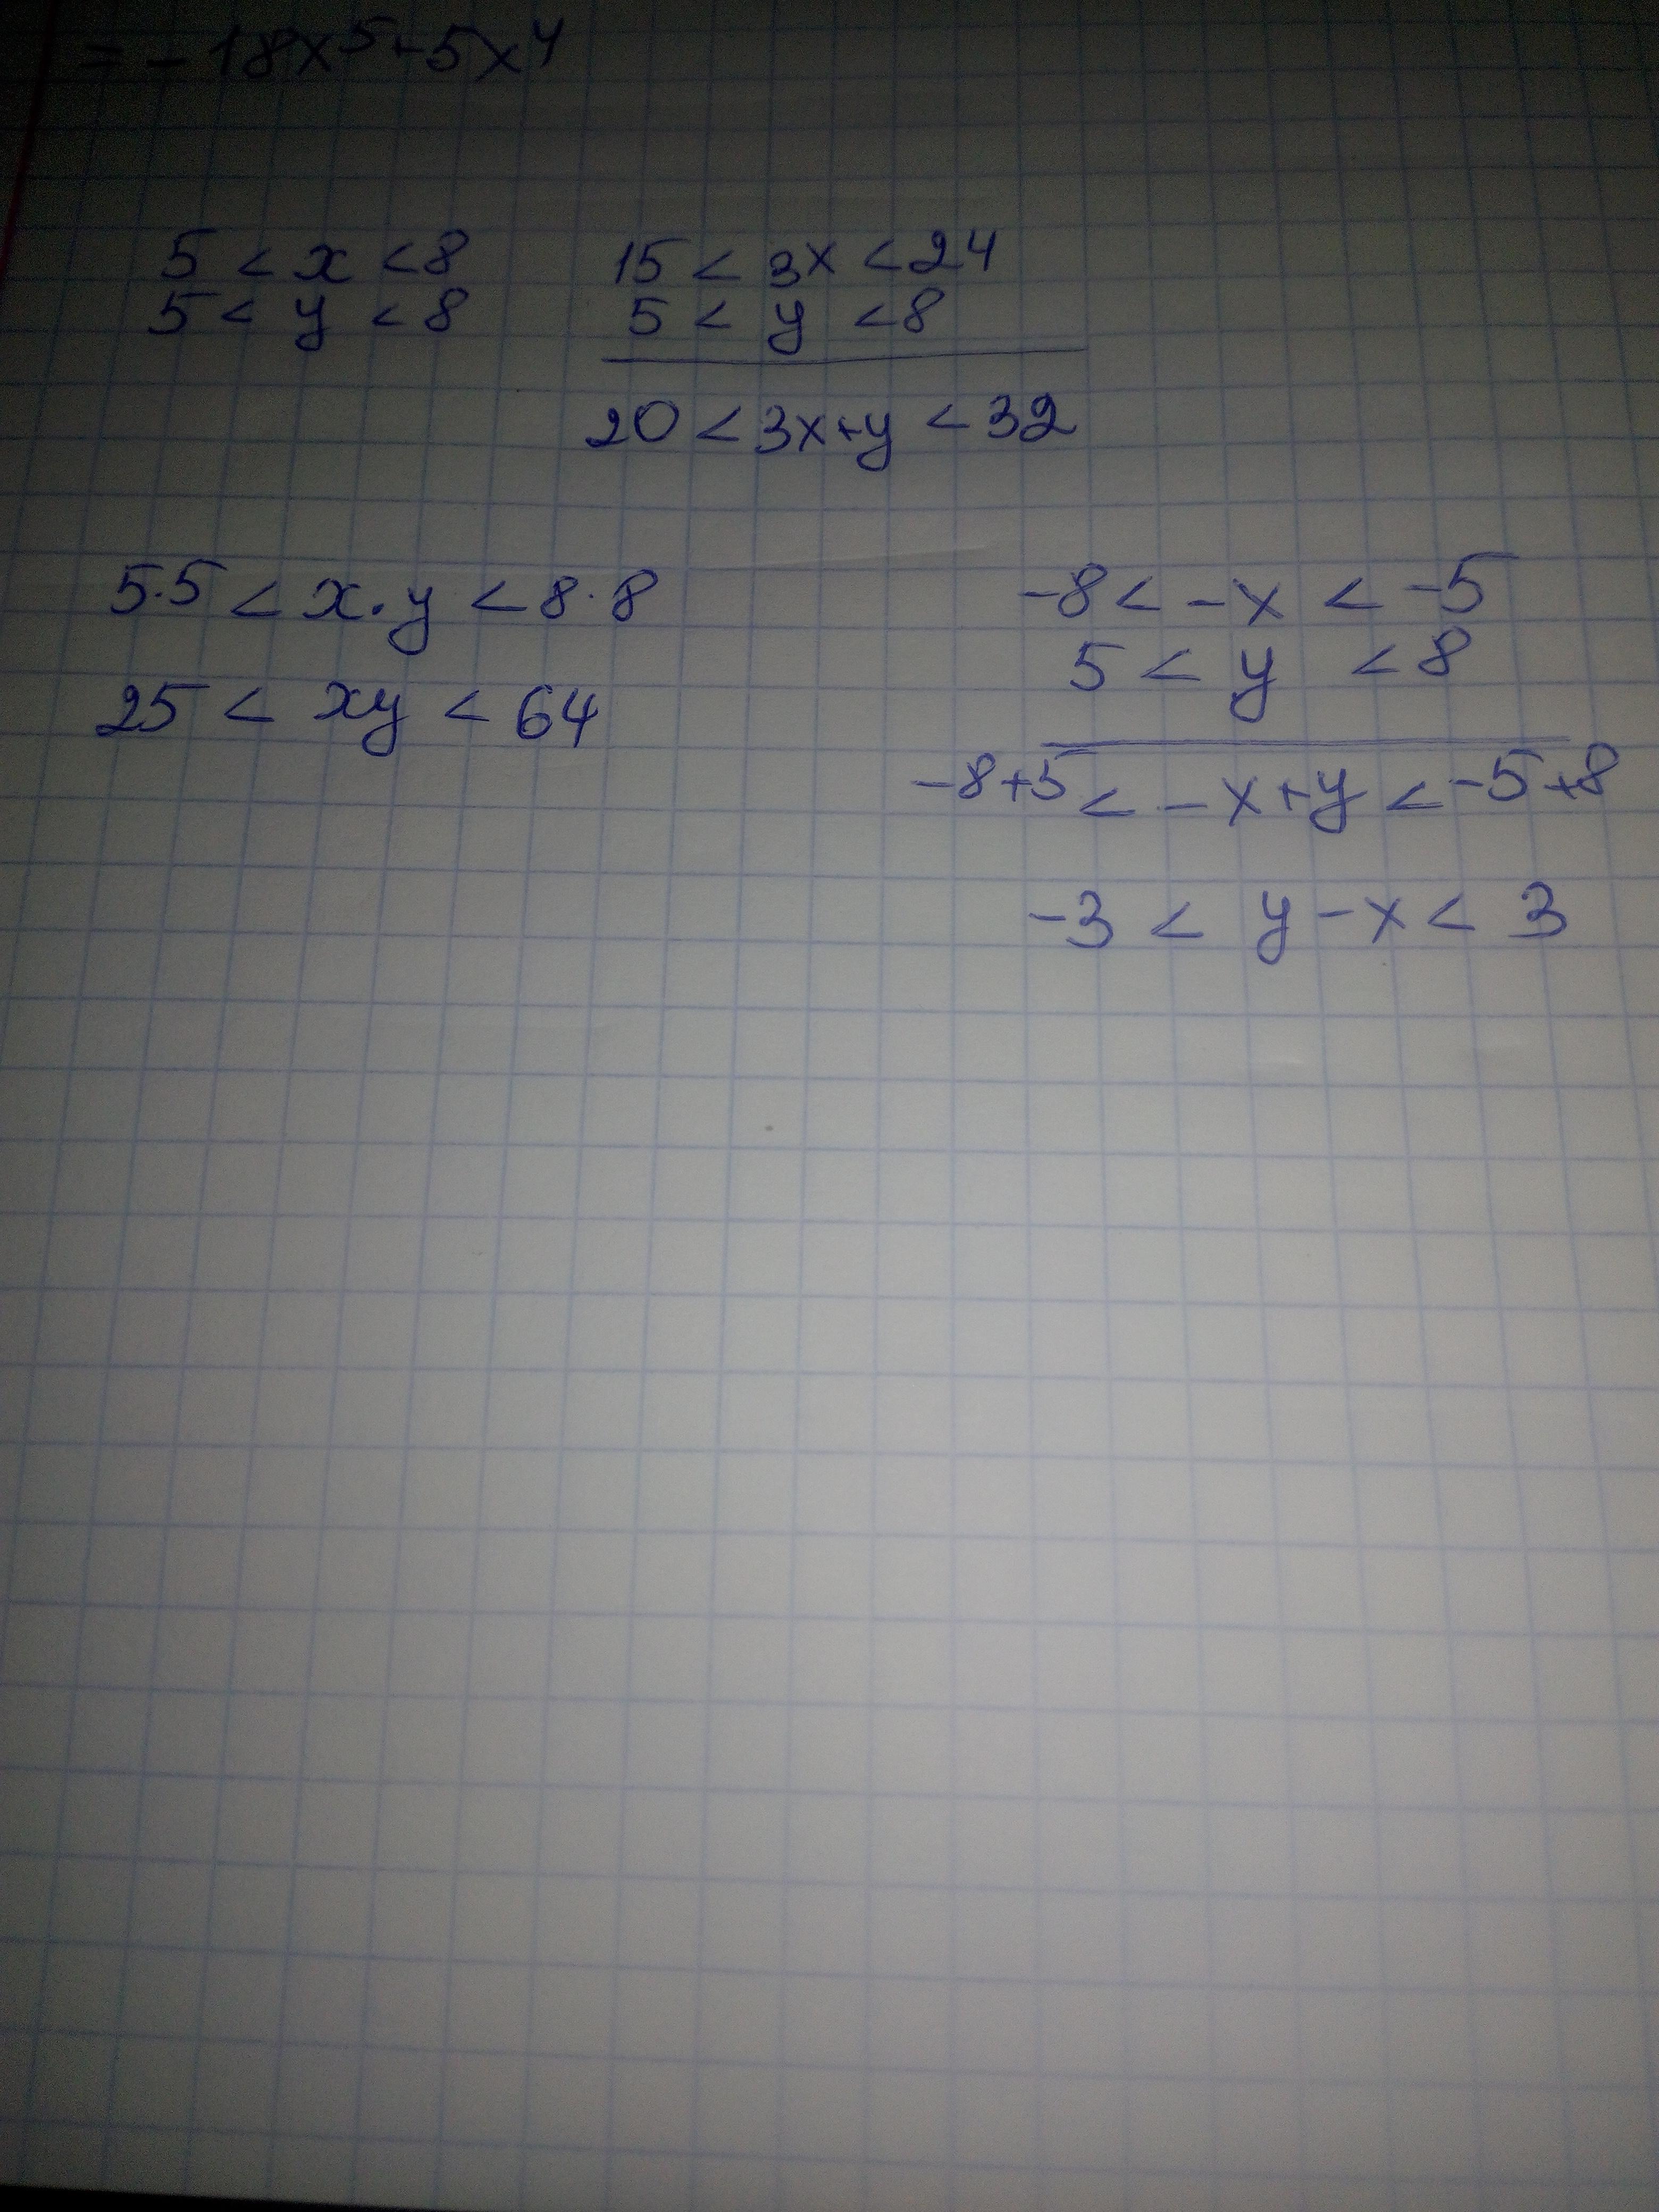 = - 18x⁵ + 5x⁴
5 < x < 8
5 < y < 8
15 < 3x < 24
5 < y < 8
20 < 3x+y < 32
5·5 < x·y < 8·8
25 < xy < 64
-8 < -x < -5
5 < y < 8
-8+5 < -x+y < -5+8
-3 < y-x < 3